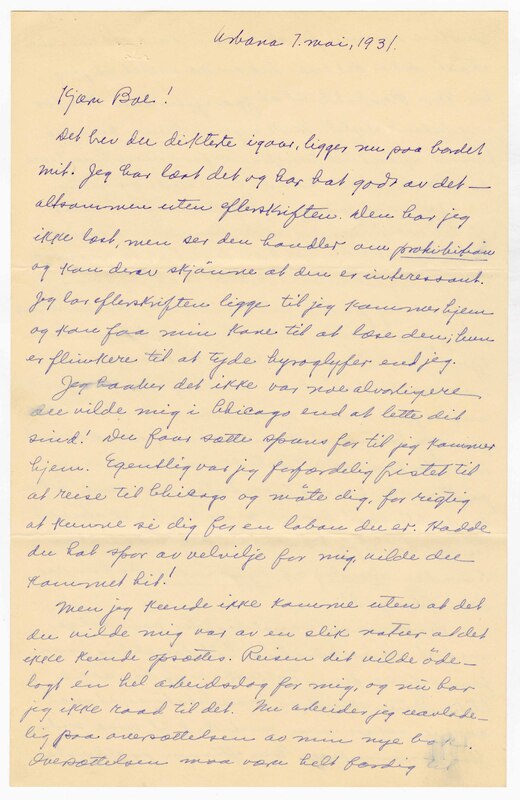 Urbana 7. mai, 1931.
Kjære Boe!
Det brev du dikterte igaar, ligger nu paa bordet
mit. Jeg har læst det og har hat godt av det —
altsammen uten efterskriften. Den har jeg
ikke læst, men ser den handler om prohibition
og kan derav skjönne at den er interessant.
Jeg lar efterskriften ligge til jeg kommer hjem
og kan faa min kone til at læse den; hun
er flinkere til at tyde hyroglyfer end jeg.
Jeg haaber det ikke var noe alvorligere
du vilde mig i Chicago end at lette dit
sind! Du faar sætte spuns for til jeg kommer
hjem. Egentlig var jeg forfærdelig fristet til
at reise til Chicago og möte dig, for rigtig
at kunne si dig for en laban du er. Hadde
du hat spor av velvilje for mig, vilde du
kommet hit!
Men jeg kunde ikke komme uten at det
du vilde mig var av en slik natur at det
ikke kunde opsættes. Reisen dit vilde öde-
lagt én hel arbeidsdag for mig, og nu har
jeg ikke raad til det. Nu arbeider jeg uavlade-
lig paa oversættelsen av min nye bok.
Oversættelsen maa være helt færdig